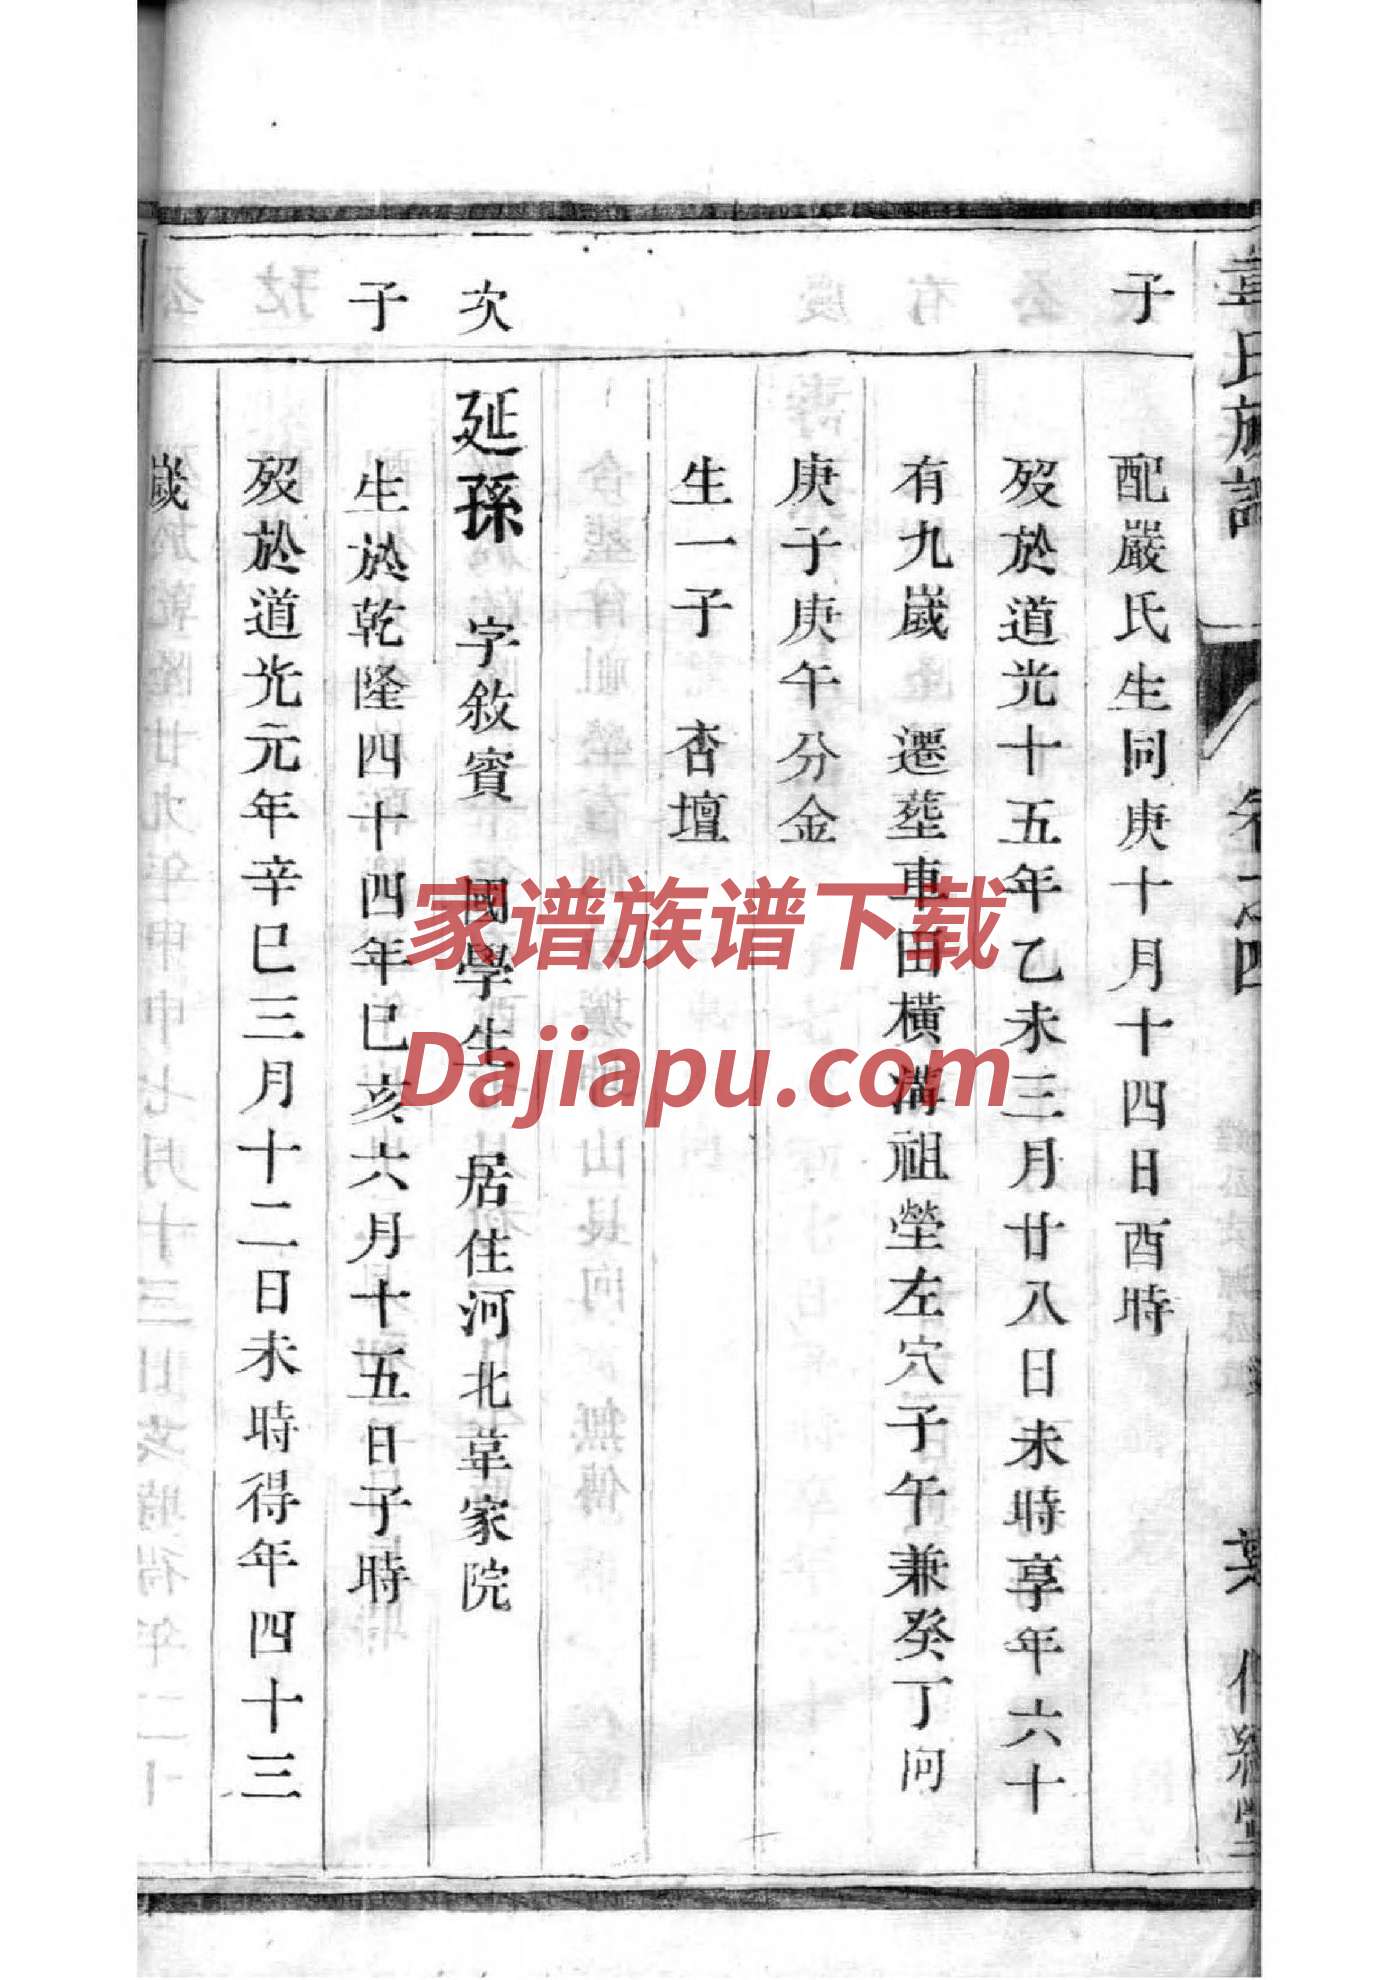 韋氏族譜
卷之四
子
配嚴氏生同庚十月十四日酉時
歿於道光十五年乙未三月廿八日未時享年六十
有九歲　遷塟車田橫溝祖塋左穴子午兼癸丁向
庚子庚午分金
生一子　杏壇
次
延孫　字敘賓　國學生　居住河北韋家院
子
生於乾隆四十四年巳亥六月十五日子時
歿於道光元年辛巳三月十二日未時得年四十三
歲
家谱族谱下载
Dajiapu.com